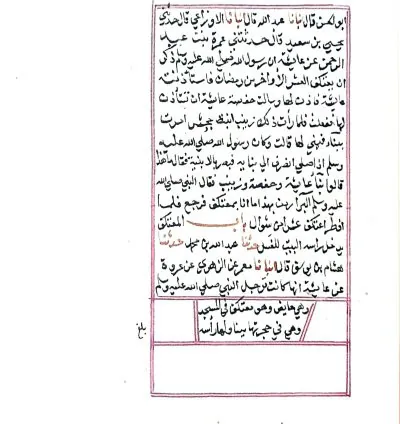 ابو الحسن قال انبانا عبد الله قال انبانا الاوزاعي قال حدثني
يحيى بن سعيد قال حدثتني عمرة بنت عبد
الرحمن عن عايشة ان رسول الله صلى الله عليه وسلم ذكر
ان يعتكف العشر الاواخر من رمضان فاستاذنته
عايشة فاذن لها وسالت حفصة عايشة ان تستأذن
لها ففعلت فلما رات ذلك زينب ابنة جحش امرت
ببناء فبني لها قالت وكان رسول الله صلى الله عليه
وسلم اذا صلى انصرف الى بنايه فبصر بالابنية فقال ما هذا
قالوا بنا عايشة وحفصة وزينب فقال النبي صلى الله
عليه وسلم آلبر اردن بهذا ما انا بمعتكف فرجع فلما
افطر اعتكف عشرا من شوال باب المعتكف
يدخل راسه البيت للغسل حدثنا عبد الله بن محمد حدثنا
هشام بن يوسف قال انبانا معمر عن الزهري عن عروة
عن عايشة انها كانت ترجل النبي صلى الله عليه وسلم
وهي حايض وهو معتكف في المسجد
وهي في حجرتها يناولها راسه
بلغ